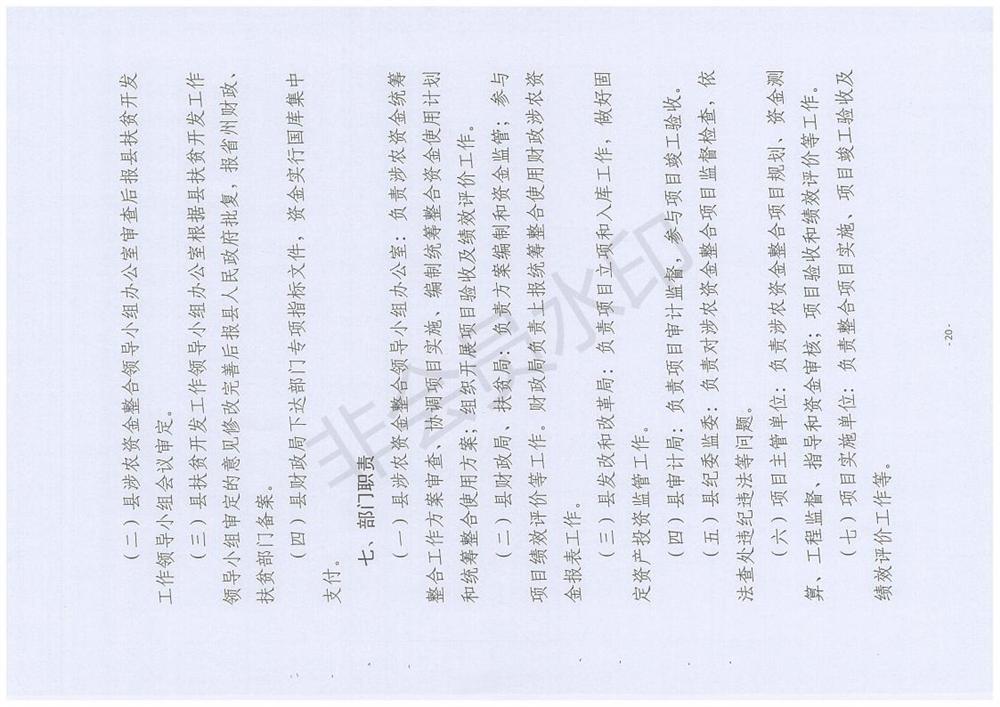 （二）县涉农资金整合领导小组办公室审查后报县扶贫开发
工作领导小组会议审定。
（三）县扶贫开发工作领导小组办公室根据县扶贫开发工作
领导小组审定的意见修改完善后报县人民政府批复，报省州财政、
扶贫部门备案。
（四）县财政局下达部门专项指标文件，资金实行国库集中
支付。
七、部门职责
（一）县涉农资金整合领导小组办公室：负责涉农资金统筹
整合工作方案审查、协调项目实施、编制统筹整合资金使用计划
和统筹整合使用方案；组织开展项目验收及绩效评价工作。
（二）县财政局、扶贫局：负责方案编制和资金监管；参与
项目绩效评价等工作。财政局负责上报统筹整合使用财政涉农资
金报表工作。
（三）县发改和改革局：负责项目立项和入库工作，做好固
定资产投资监管工作。
（四）县审计局：负责项目审计监督，参与项目竣工验收。
（五）县纪委监委：负责对涉农资金整合项目监督检查，依
法查处违纪违法等问题。
（六）项目主管单位：负责涉农资金整合项目规划、资金测
算、工程监督、指导和资金审核；项目验收和绩效评价等工作。
（七）项目实施单位：负责整合项目实施、项目竣工验收及
绩效评价工作等。
-20-
非会员水印